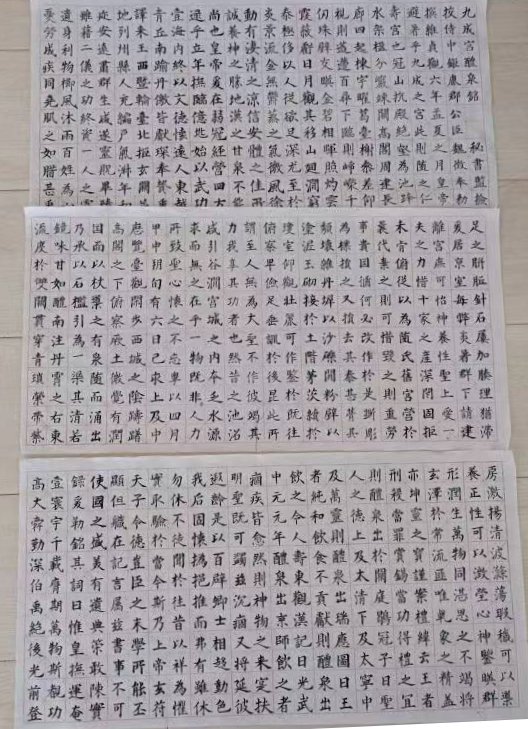 九成宮醴泉銘 秘書監撿
挍侍中鉅鹿郡公臣魏徵奉勑
撰維貞觀六年孟夏之月皇帝
避暑乎九成之宮此則隨之仁
壽宮也冠山抗殿絕壑為池跨
水架楹分巖竦闕高閣周建長
廊四起棟宇膠葛臺榭參差仰
視則迢遰百尋下臨則崢嶸千
仞珠璧交暎金碧相暉照灼雲
霞蔽虧日月觀其移山迴澗窮
泰極侈以人從欲足深尤至於
炎景流金無鬱蒸之氣微風徐
動有淒清之涼信安體之佳所
誠養神之勝地漢之甘泉不能
尚也皇帝爰在弱冠經營四方
逮乎立年撫臨億兆始以武功
壹海內終以文德懷遠人東越
青丘南踰丹徼皆獻琛奉贄重
譯來王西暨輪臺北拒玄闕並
地列州縣人充編戶氣淑年和
邇安遠肅群生咸遂靈貺畢臻
雖藉二儀之功終資一人之慮
遺身利物櫛風沐雨百姓為心
憂勞成疾同堯肌之如腊甚禹
足之胼胝針石屢加腠理猶滯
爰居京室每弊炎暑群下請建
離宮庶可怡神養性聖上愛一
夫之力惜十家之產深閉固拒
未肯俯從以為隨氏舊宮營於
曩代棄之則可惜毀之則重勞
事貴因循何必改作於是斲彫
為樸損之又損去其泰甚葺其
頹壞雜丹墀以沙礫間粉壁以
塗泥玉砌接於土階茅茨續於
瓊室仰觀壯麗可作鑒於既往
俯察卑儉足垂訓於後昆此所
謂至人無為大聖不作彼竭其
力我享其功者也然昔之池沼
咸引谷澗宮城之內本乏水源
求而無之在乎一物既非人力
所致聖心懷之不忘粵以四月
甲申朔旬有六日己亥上及中宮
歷覽臺觀閑步西城之陰躊躇
高閣之下俯察厥土微覺有潤
因而以杖導之有泉隨而涌出
乃承以石檻引為一渠其清若
鏡味甘如醴南注丹霄之右東
流度於雙闕貫穿青瑣縈帶紫
房激揚清波滌蕩瑕穢可以導
養正性可以澂瑩心神鑒暎群
形潤生萬物同湛恩之不竭將
玄澤於常流匪唯乾象之精蓋
亦坤靈之寶謹案禮緯云王者
刑殺當罪賞錫當功得禮之宜
則醴泉出於闕庭鶡冠子曰聖
人之德上及太清下及太寧中
及萬靈則醴泉出瑞應圖曰王
者純和飲食不貢獻則醴泉出
飲之令人壽東觀漢記曰光武
中元元年醴泉出京師飲之者
痼疾皆愈然則神物之來寔扶
明聖既可蠲茲沉痼又將延彼
遐齡是以百辟卿士相趨動色
我后固懷撝挹推而弗有雖休
勿休不徒聞於往昔以祥為懼
實取驗於當今斯乃上帝玄符
天子令德豈臣之末學所能丕
顯但職在記言屬茲書事不可
使國之盛美有遺典策敢陳實
錄爰勒銘其詞曰惟皇撫運奄
壹寰宇千載膺期萬物斯覩功
高大舜勤深伯禹絕後光前登